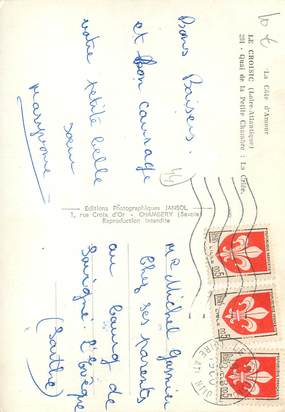 La Côte d'Amour
LE CROISIC (Loire-Atlantique)
281 - Quai de la Petite Chambre : La Criée.
10 f
Bons Baisers.
et bon courage
votre petite belle
sœur
Maryvonne
Editions Photographiques JANSOL
7, rue Croix d'Or - CHAMBERY (Savoie)
Reproduction Interdite
Mr Michel Garnier
Chez ses parents
au bourg de
Savigné l'Evêque
(Sarthe)